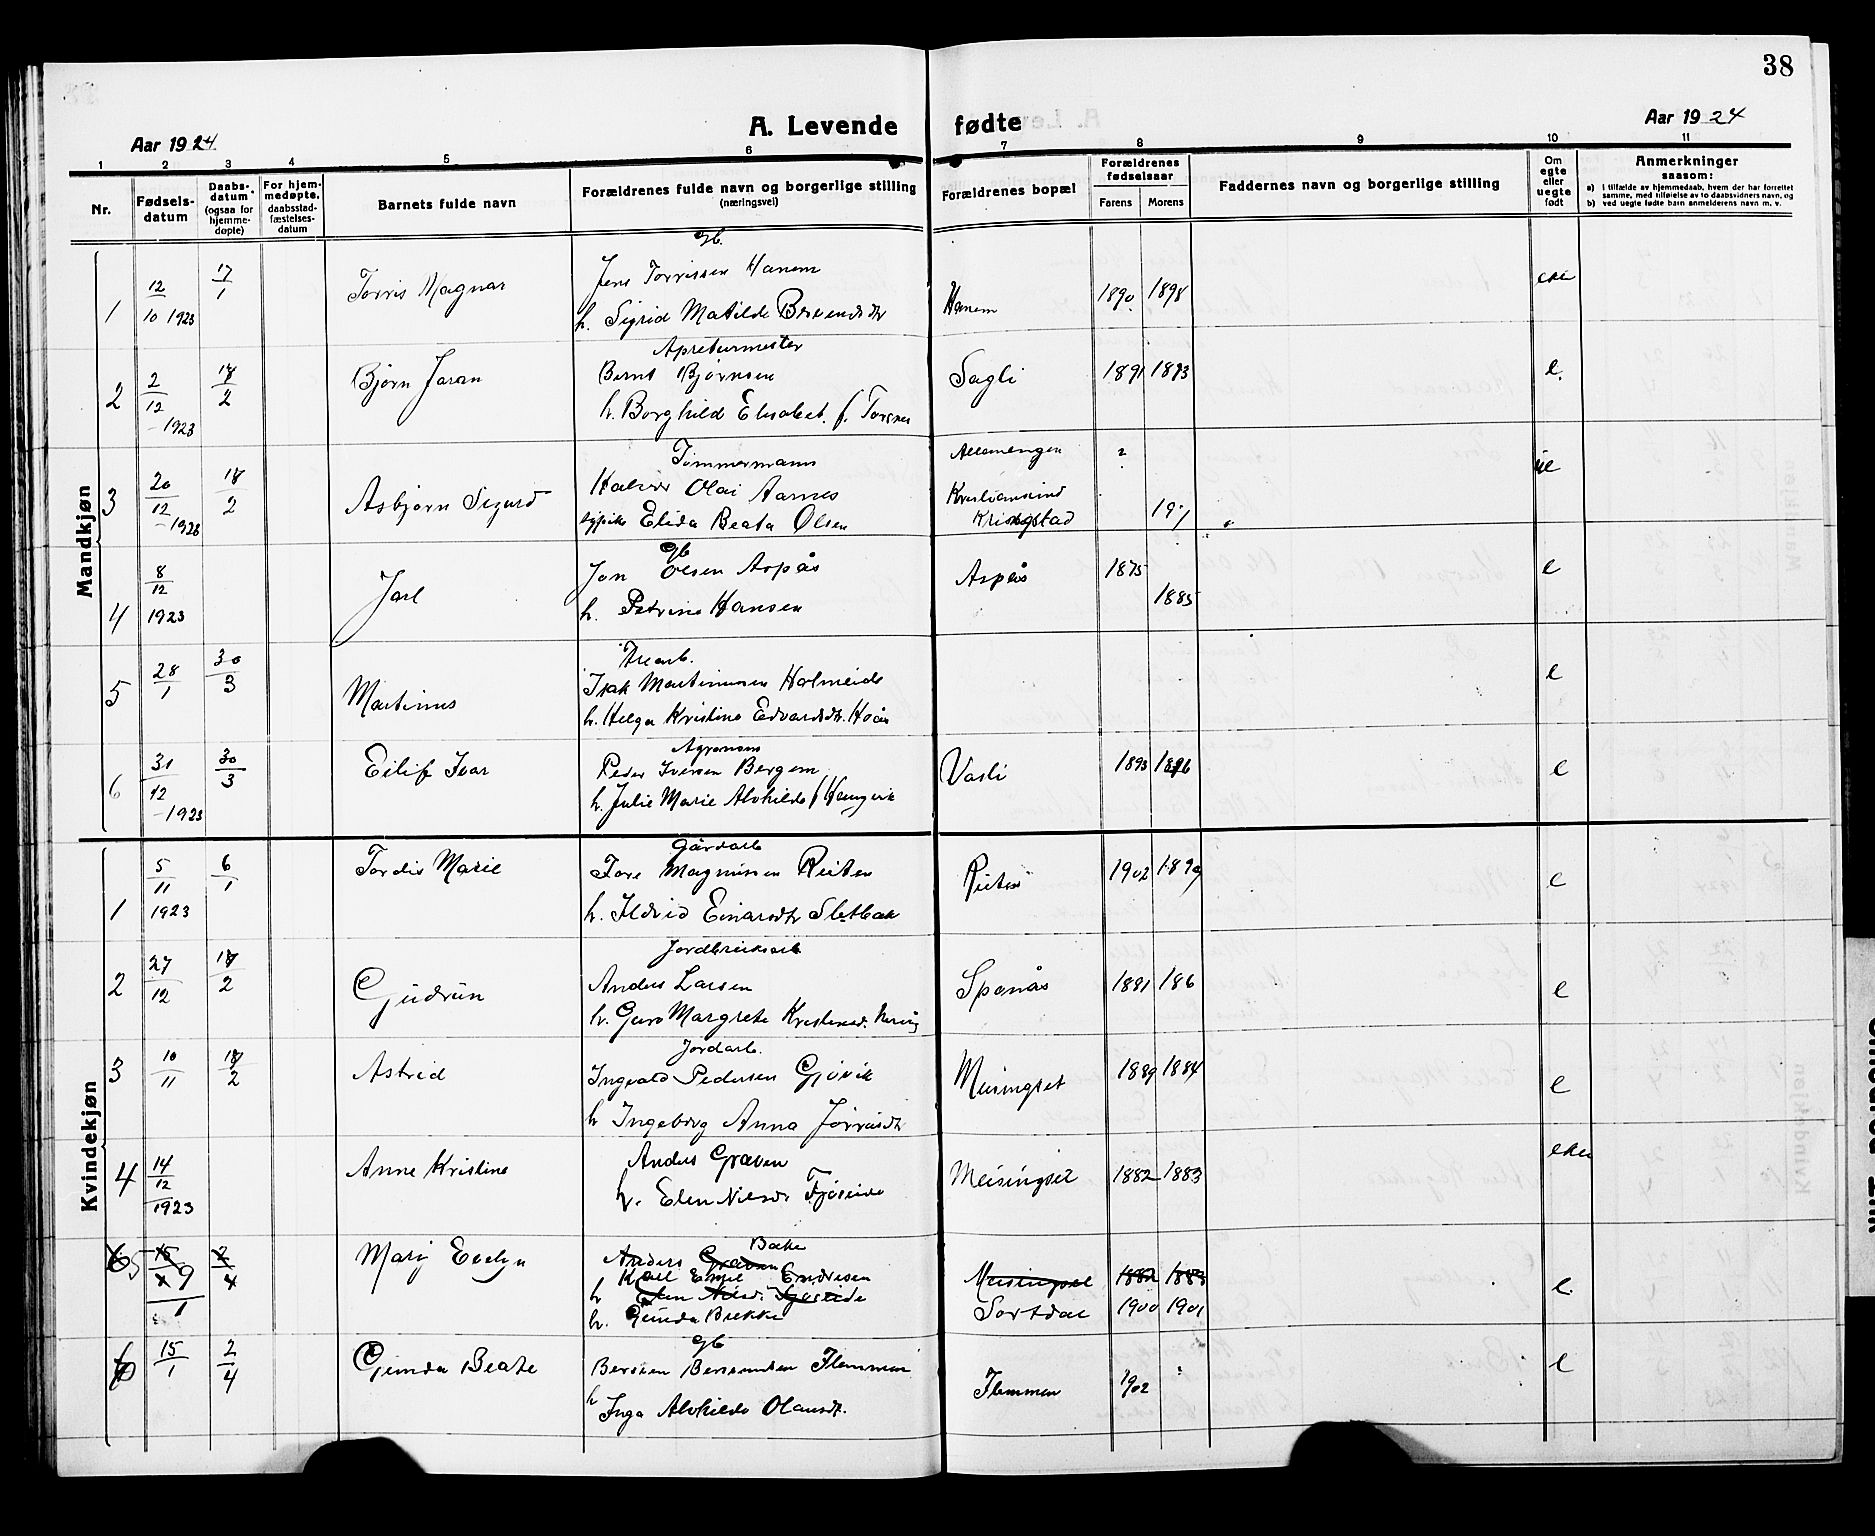 38
A. Levende fødte
Aar 1924
Aar 1924
1 2 3 4 5 6 7 8 9 10 11
Nr.
Fødsels-
datum
Daabs-
datum
(ogsaa for
hjemme-
døpte)
For hjem-
medøpte.
daabsstad-
fæstelses-
datum
Barnets fulde navn
Forældrenes fulde navn og borgerlige stilling
(næringsvei)
Forældrenes bopæl
Forældrenes
fødselsaar
Farens Morens
Faddernes navn og borgerlige stilling
Om
egte
eller
uegte
født
Anmerkninger
saasom:
a) i tilfælde av hjemmedaab, hvem der har forrettet
samme, med tilføielse av to daabsvidners navn, og
b) ved uegte fødte barn anmelderens navn m. v.
Mandkjøn
gb.
1 12/10 1923 17/1 Torris Magnar Jens Torrissen Hanem Hanem 1890 1898
h. Sigrid Matilde
Apreturmester
2 2/12 -1923 18/2 Bjørn Jaran Bernt Bjørnsen Sagli 1891 1893 e.
h. Borghild Elisabet f. Torsnes
Tømmermann
3 20/12 -1923 18/2 Asbjørn Sigurd Halvor Olai Aarnes ? ue
Elida Beata Olsen Kristiansund Kringstad
gb
4 8/12 1923 Jarl Jon Olsen Aspås Aspås 1875 e
h. Petrine Hansen 1885
5 28/1 30/3 Martinus Isak Martinussen Holmeide e
h. Helga Kristine Edvardsdtr. Hoås
Agronom
6 31/12 -1923 30/3 Eilif Ivar Peder Iversen Bergem Vasli 1893 1896 e
h. Julie Marie Alvhilde f.
Kvindekjøn
Gårdarb
1 5/11 1923 6/1 Tordis Marie Tore Magnussen Reiten Reiten 1902 1899 e
h. Ildrid Einarsdtr Sletbak
Jordbruksarb
2 27/12 18/2 Gudrun Anders Larsen Spånås 1881 186 e
h. Guro Margrete
Jordarb.
3 10/11 18/2 Astrid Ingvald Pedersen Gjøvik Meisingset 1889 1884 e
h Ingeborg Anna
4 14/12 1923 Anne Kristine Anders Graven Meisingset 1882 1883
h. Elen Nilsd. Fjøseide
Bække
5 9/1 2/4 Mary Evelyn Anders Graven Meisingset 1882 1883
Karl Emil Endresen e.
h Elen Nilsd. Fjøseide
h. Gunda Brekke Sortdal 1900 1901
gb
6 15/1 2/4 Gunda Beate Bersven Bersvendsen Flemmen Flemmen 1902 e
h Inga Alvhilde Olausdt.